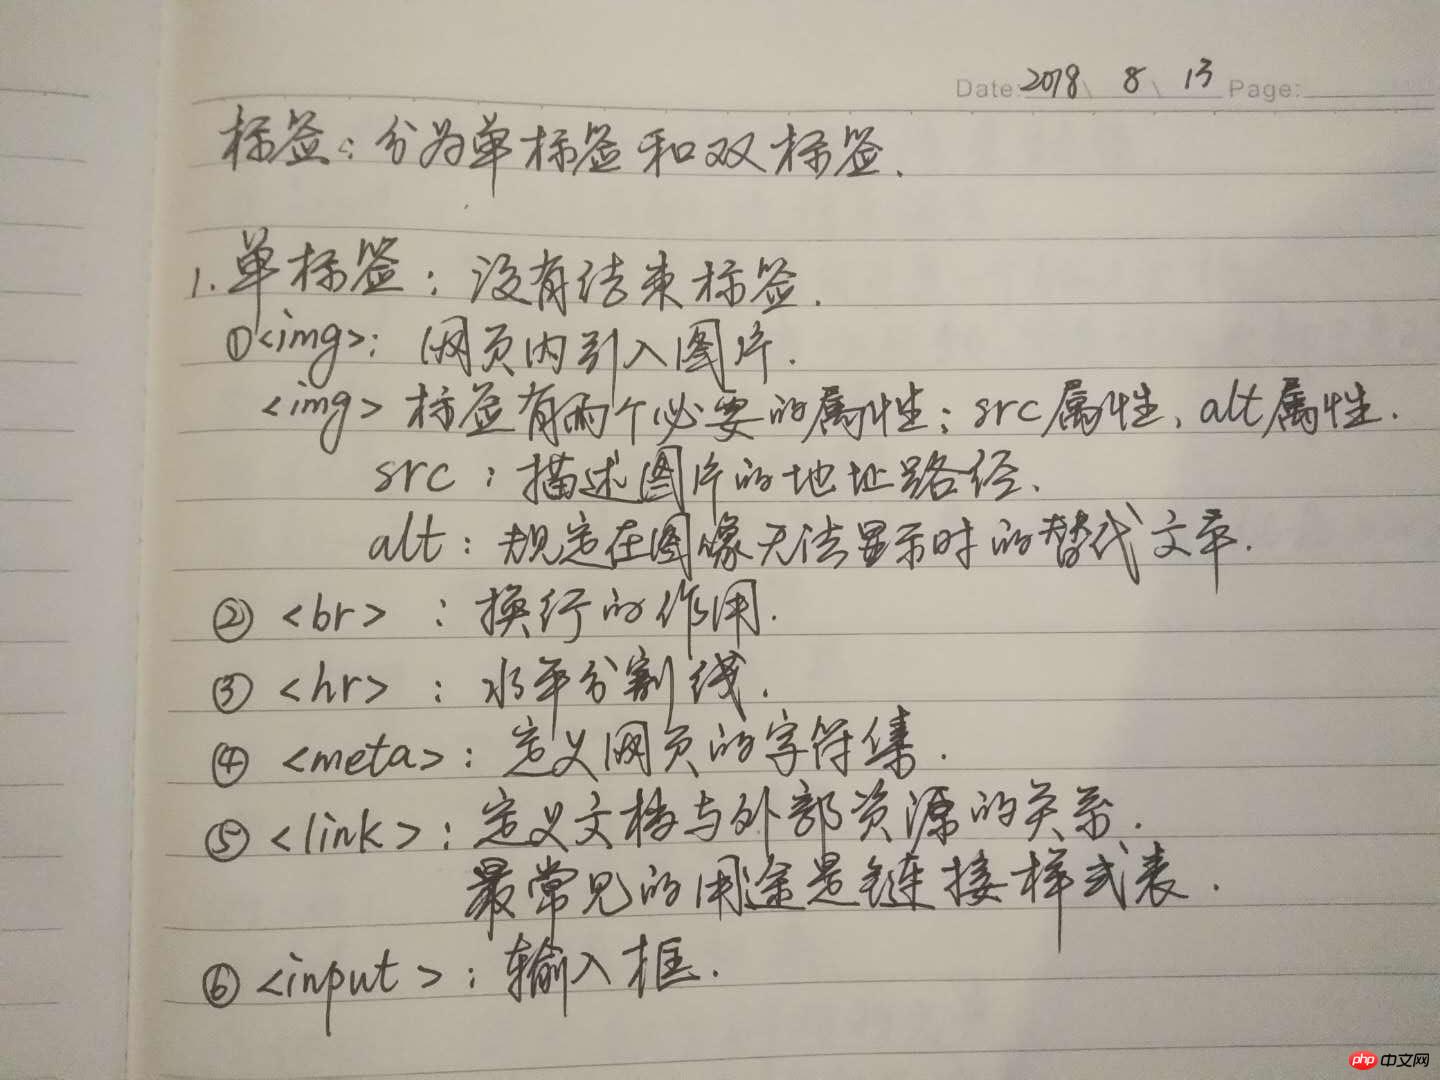 Date: 2018 \ 8 \ 13 Page:
标签：分为单标签和双标签.
1. 单标签：没有结束标签.
①<img>：网页内引入图片.
<img>标签有两个必要的属性：src属性、alt属性.
src：描述图片的地址路径.
alt：规定在图像无法显示时的替代文章.
② <br> ：换行的作用.
③ <hr> ：水平分割线.
④ <meta>：定义网页的字符集.
⑤ <link>：定义文档与外部资源的关系.
最常见的用途是链接样式表.
⑥ <input>：输入框.
php 中文网